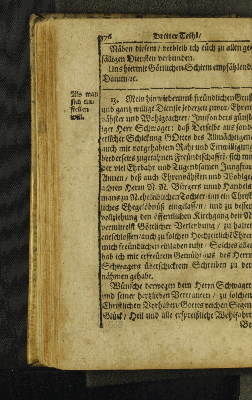 Dritter Theil/
Nâben diesem / verbleib ich euch zu allen ge-
fälligen Diensten verbunden.
Uns hiermit Göttlichem Schirm empfehlende.
Datum/ꝛc.
Als man
sich
will.
13. Mein hinwiderumb freundlichen Gruß
und gantz willige Dienste jederzeit zuvor, Ehren-
vâhster und Wohlgeachter/ Insonders günsti-
ger Herr Schwager: daß Derselbe aus sonde-
Schickung GOttes des Allmächtigen/
auch mit vorgehabtem Raht und Einwilligung
beyderseits Freundschafft/ sich mit
der viel Ehrbahr und Tugendsamen Jungfrau
Annen/ deß auch Ehrenvâhsten und Wohlge-
achten Herrn N. N. Bürgers unnd Handels-
Tochter/ in ein Christ-
liches eingelassen/ und zu dessen
vollziehung den öffentlichen Kirchgang den N.
vermittelst Göttlicher Verleyhung / zu halten
entschlossen/ auch zu solchen Hochzeitlichen Ehren
mich freundlichen einladen tuhe/ Solches alles
hab ich mit erfreutem Gemüht aus des Herrn
Schwagers überschicktem Schreiben zu ver-
nähmen gehabt.
Wünsche derwegen dem Herrn Schwager
und seiner hertzlieben Vertrauten / zu solchem
Christlichen Vorhaben/ Gottes reichen Segen/
Glück/ Heil und alle ersprießliche Wohlfahrt